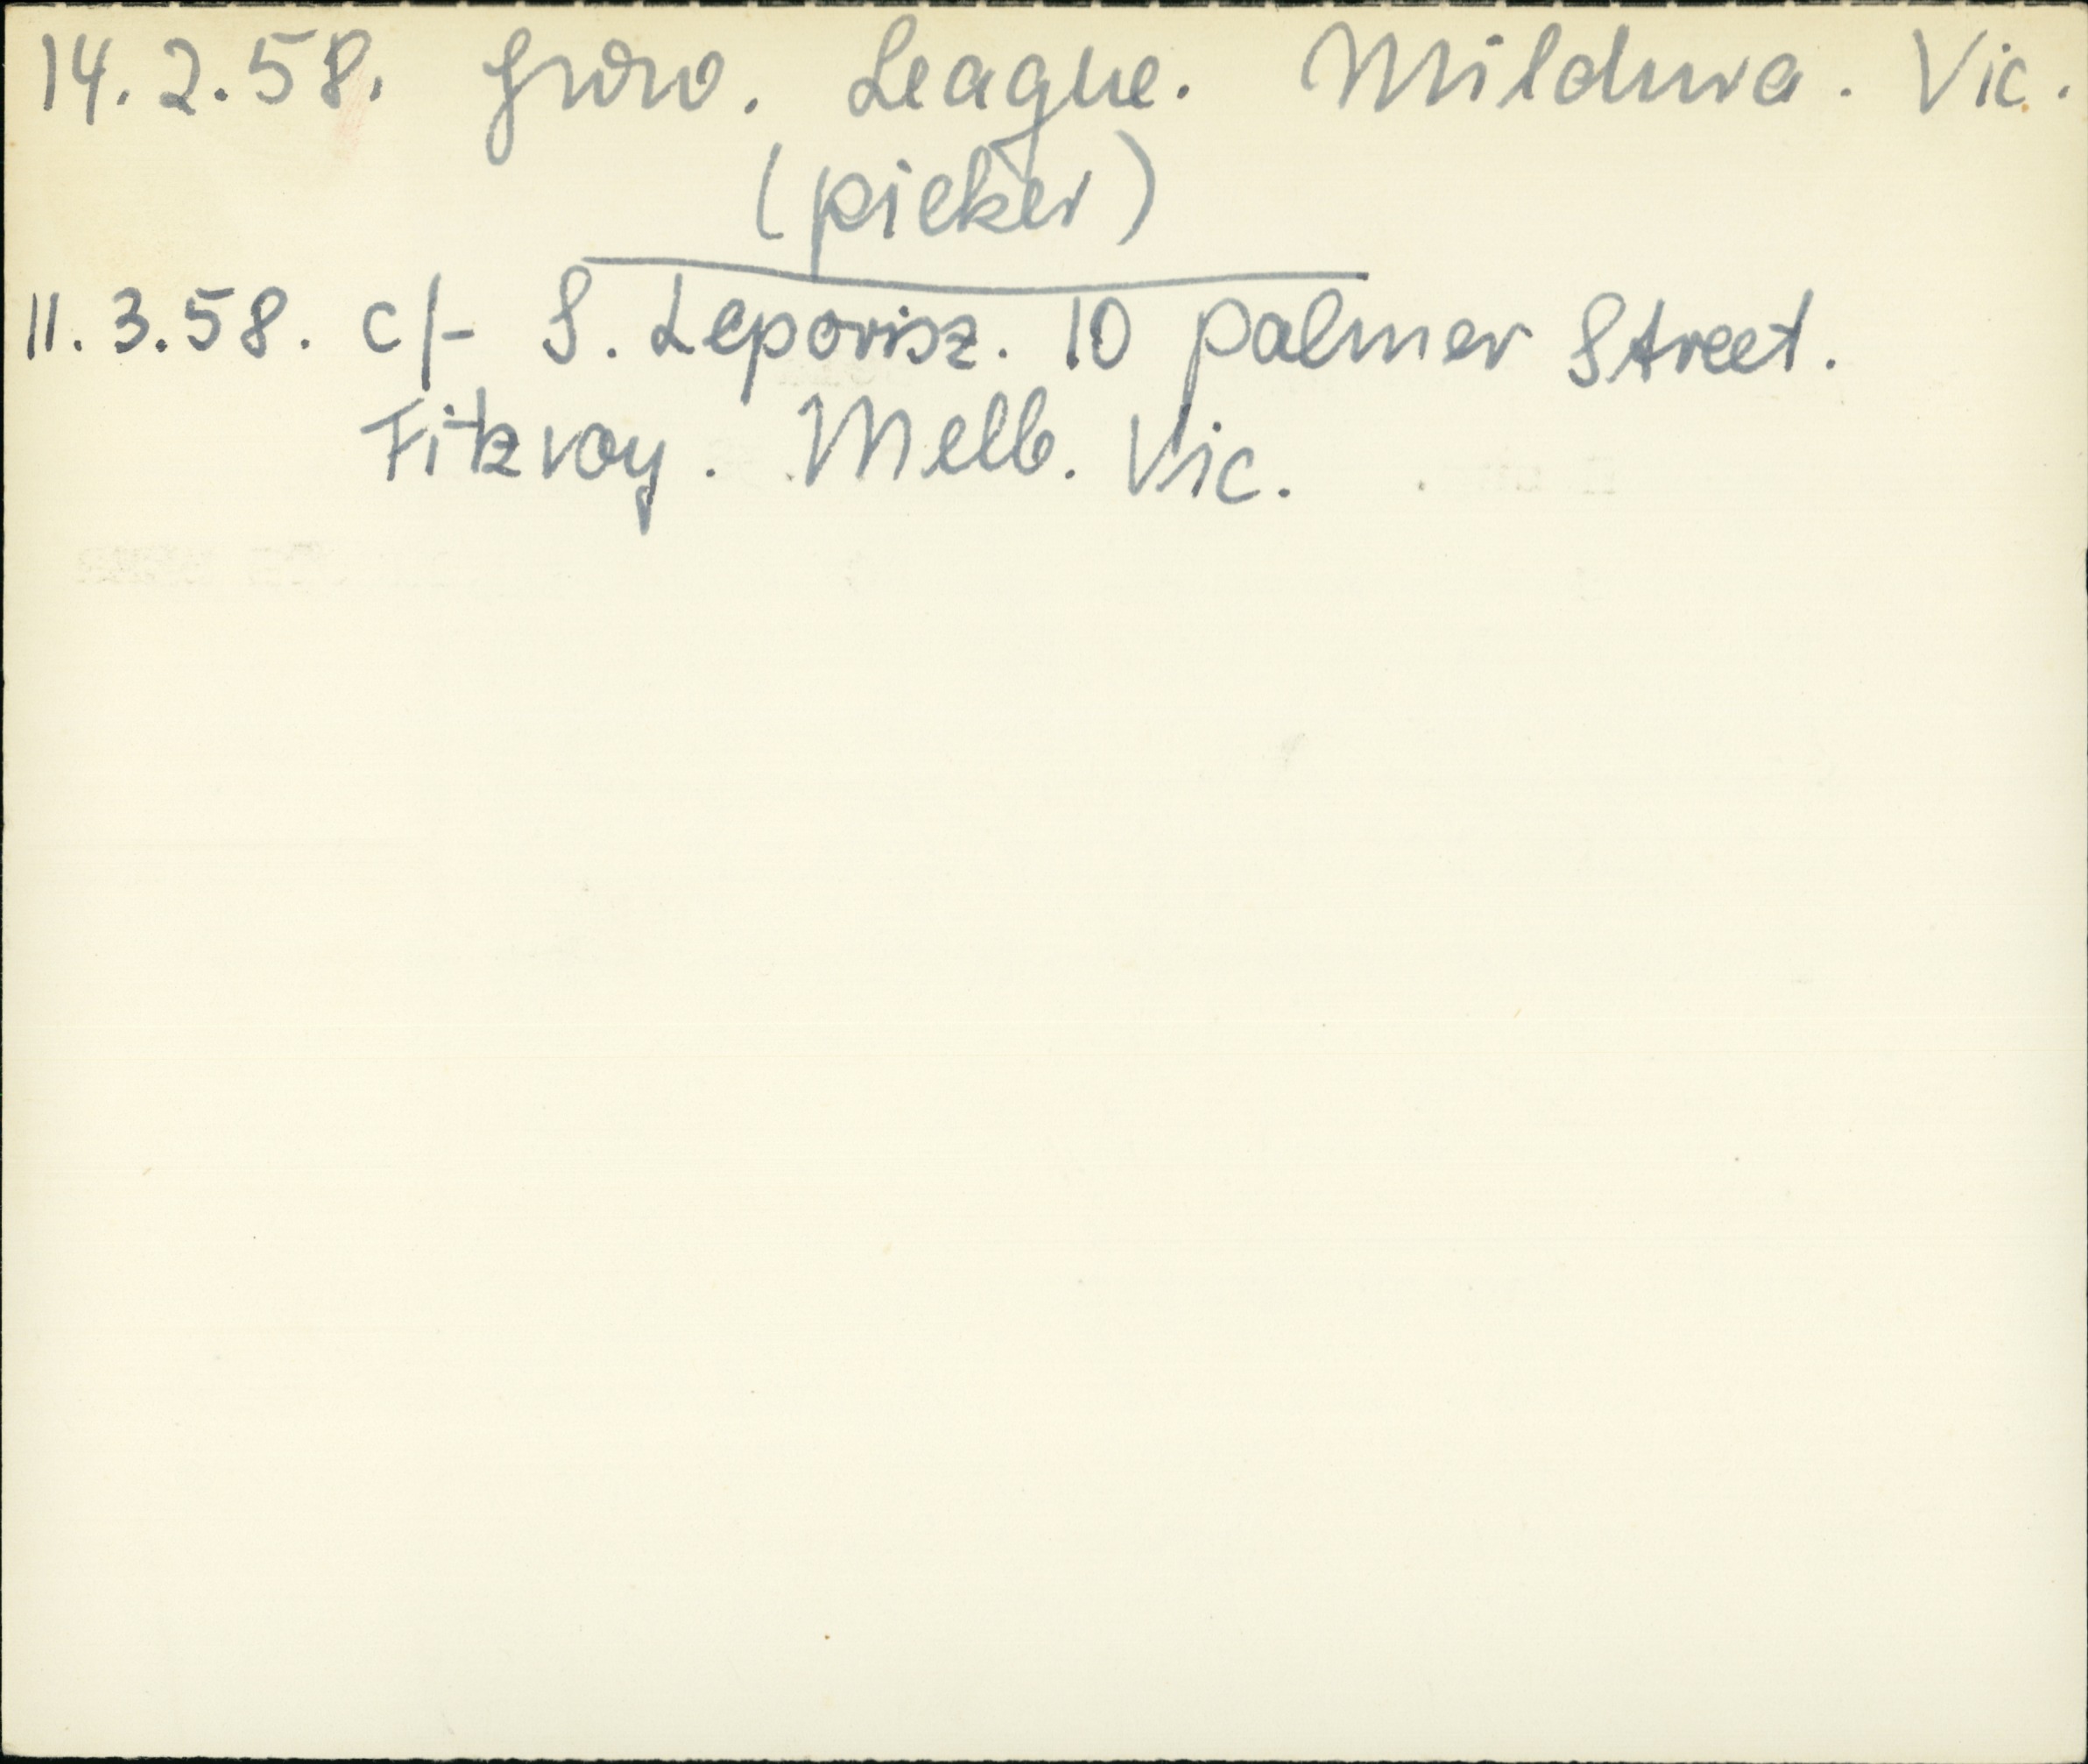 14.2.58. Grow. League. Mildura. Vic.
(picker)
11.3.58. c/- S. Leporisz. 10 Palmer Street.
Fitzroy. Melb. Vic.